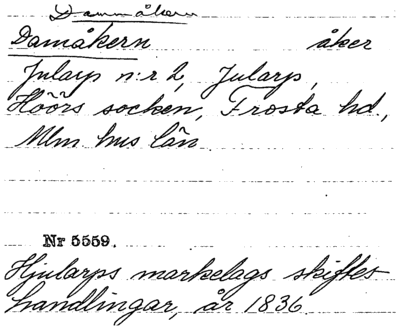 Dammåkern
Damåkern åker
Jularp n:r 2, Jularp,
Höörs socken, Frosta hd.,
Mlm hus län
Nr 5559.
Hjularps markelags skiftes
handlingar, år 1836